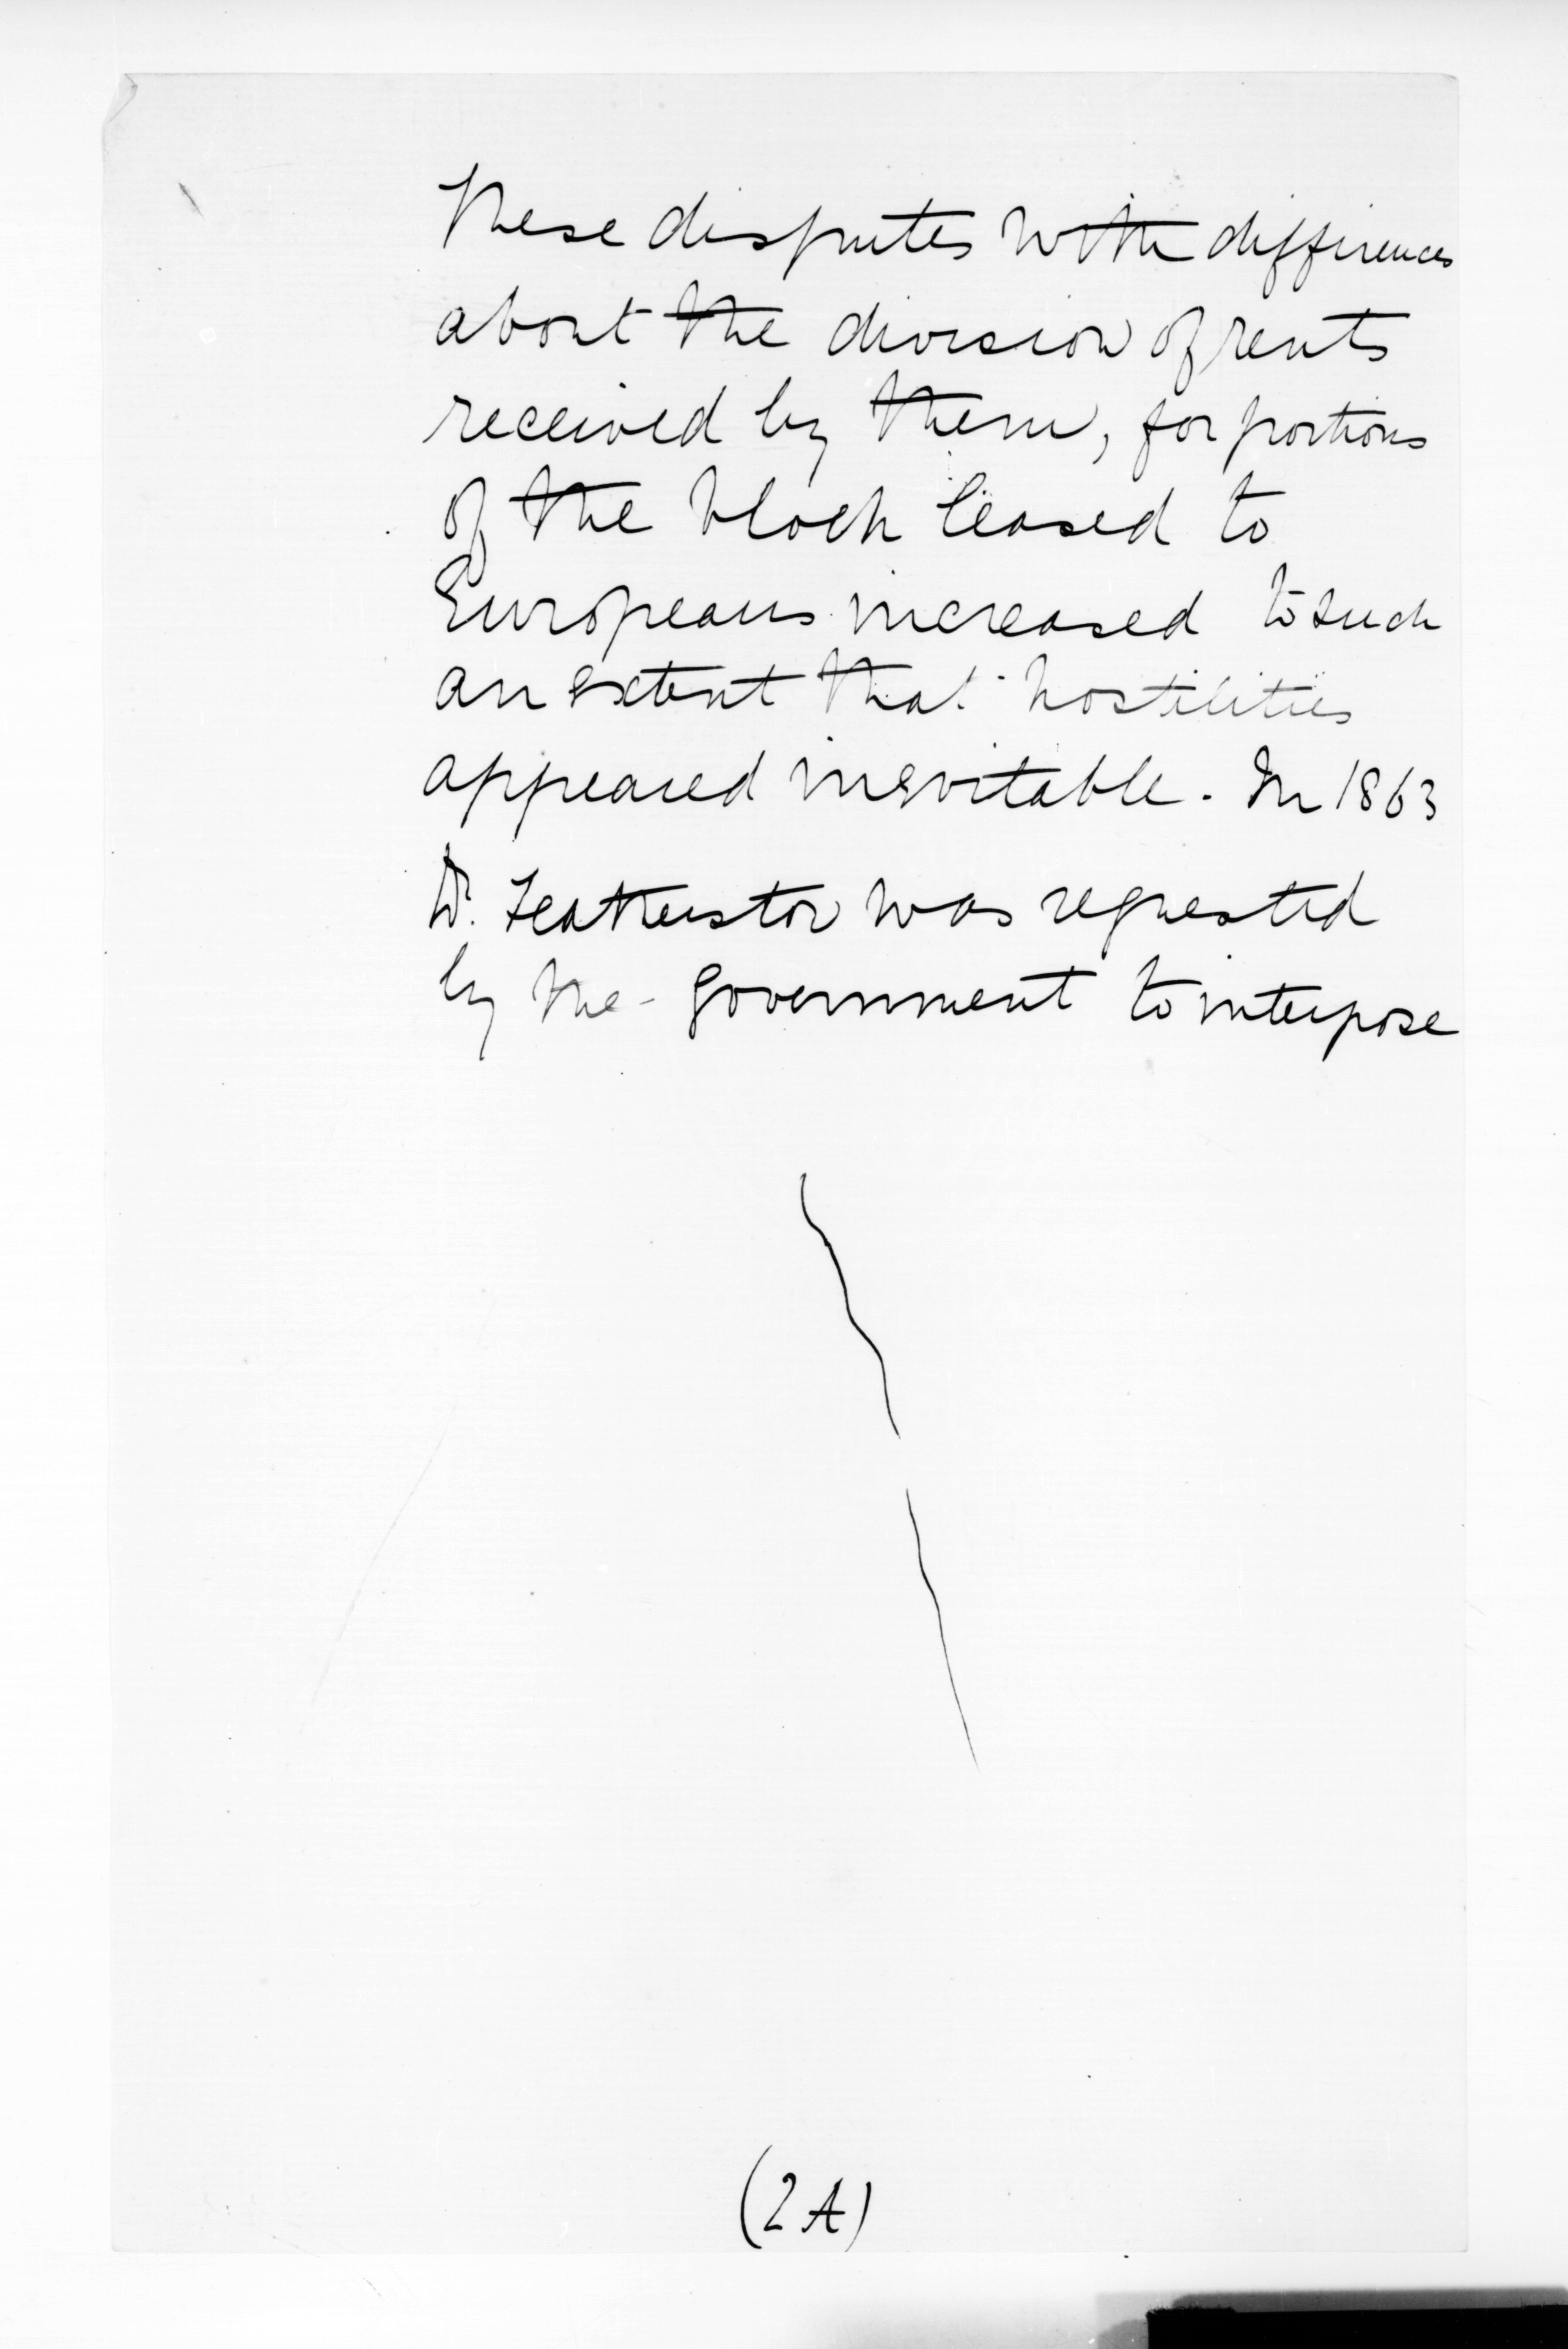 These disputes with differences
about the division of rents
received by them, for portions
of the block leased to
Europeans increased to such
an extent that hostilities
appeared inevitable. In 1863
Dr. Featherston was requested
by the government to interpose
(2A)